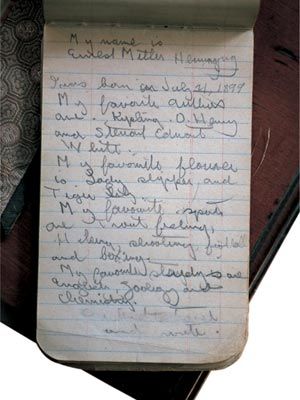 My name is
Ernest Miller Hemingway
I was born on July 21, 1899
My favorite authors
are Kipling, O. Henry
and Steuart Edward
White.
My favorite flower
is Lady slipper and
Tiger Lily.
My favourite sports
are Trout fishing,
Hiking, shooting, football
and boxing.
My favorite studies are
English, Zoology and
Chemistry.
and write.